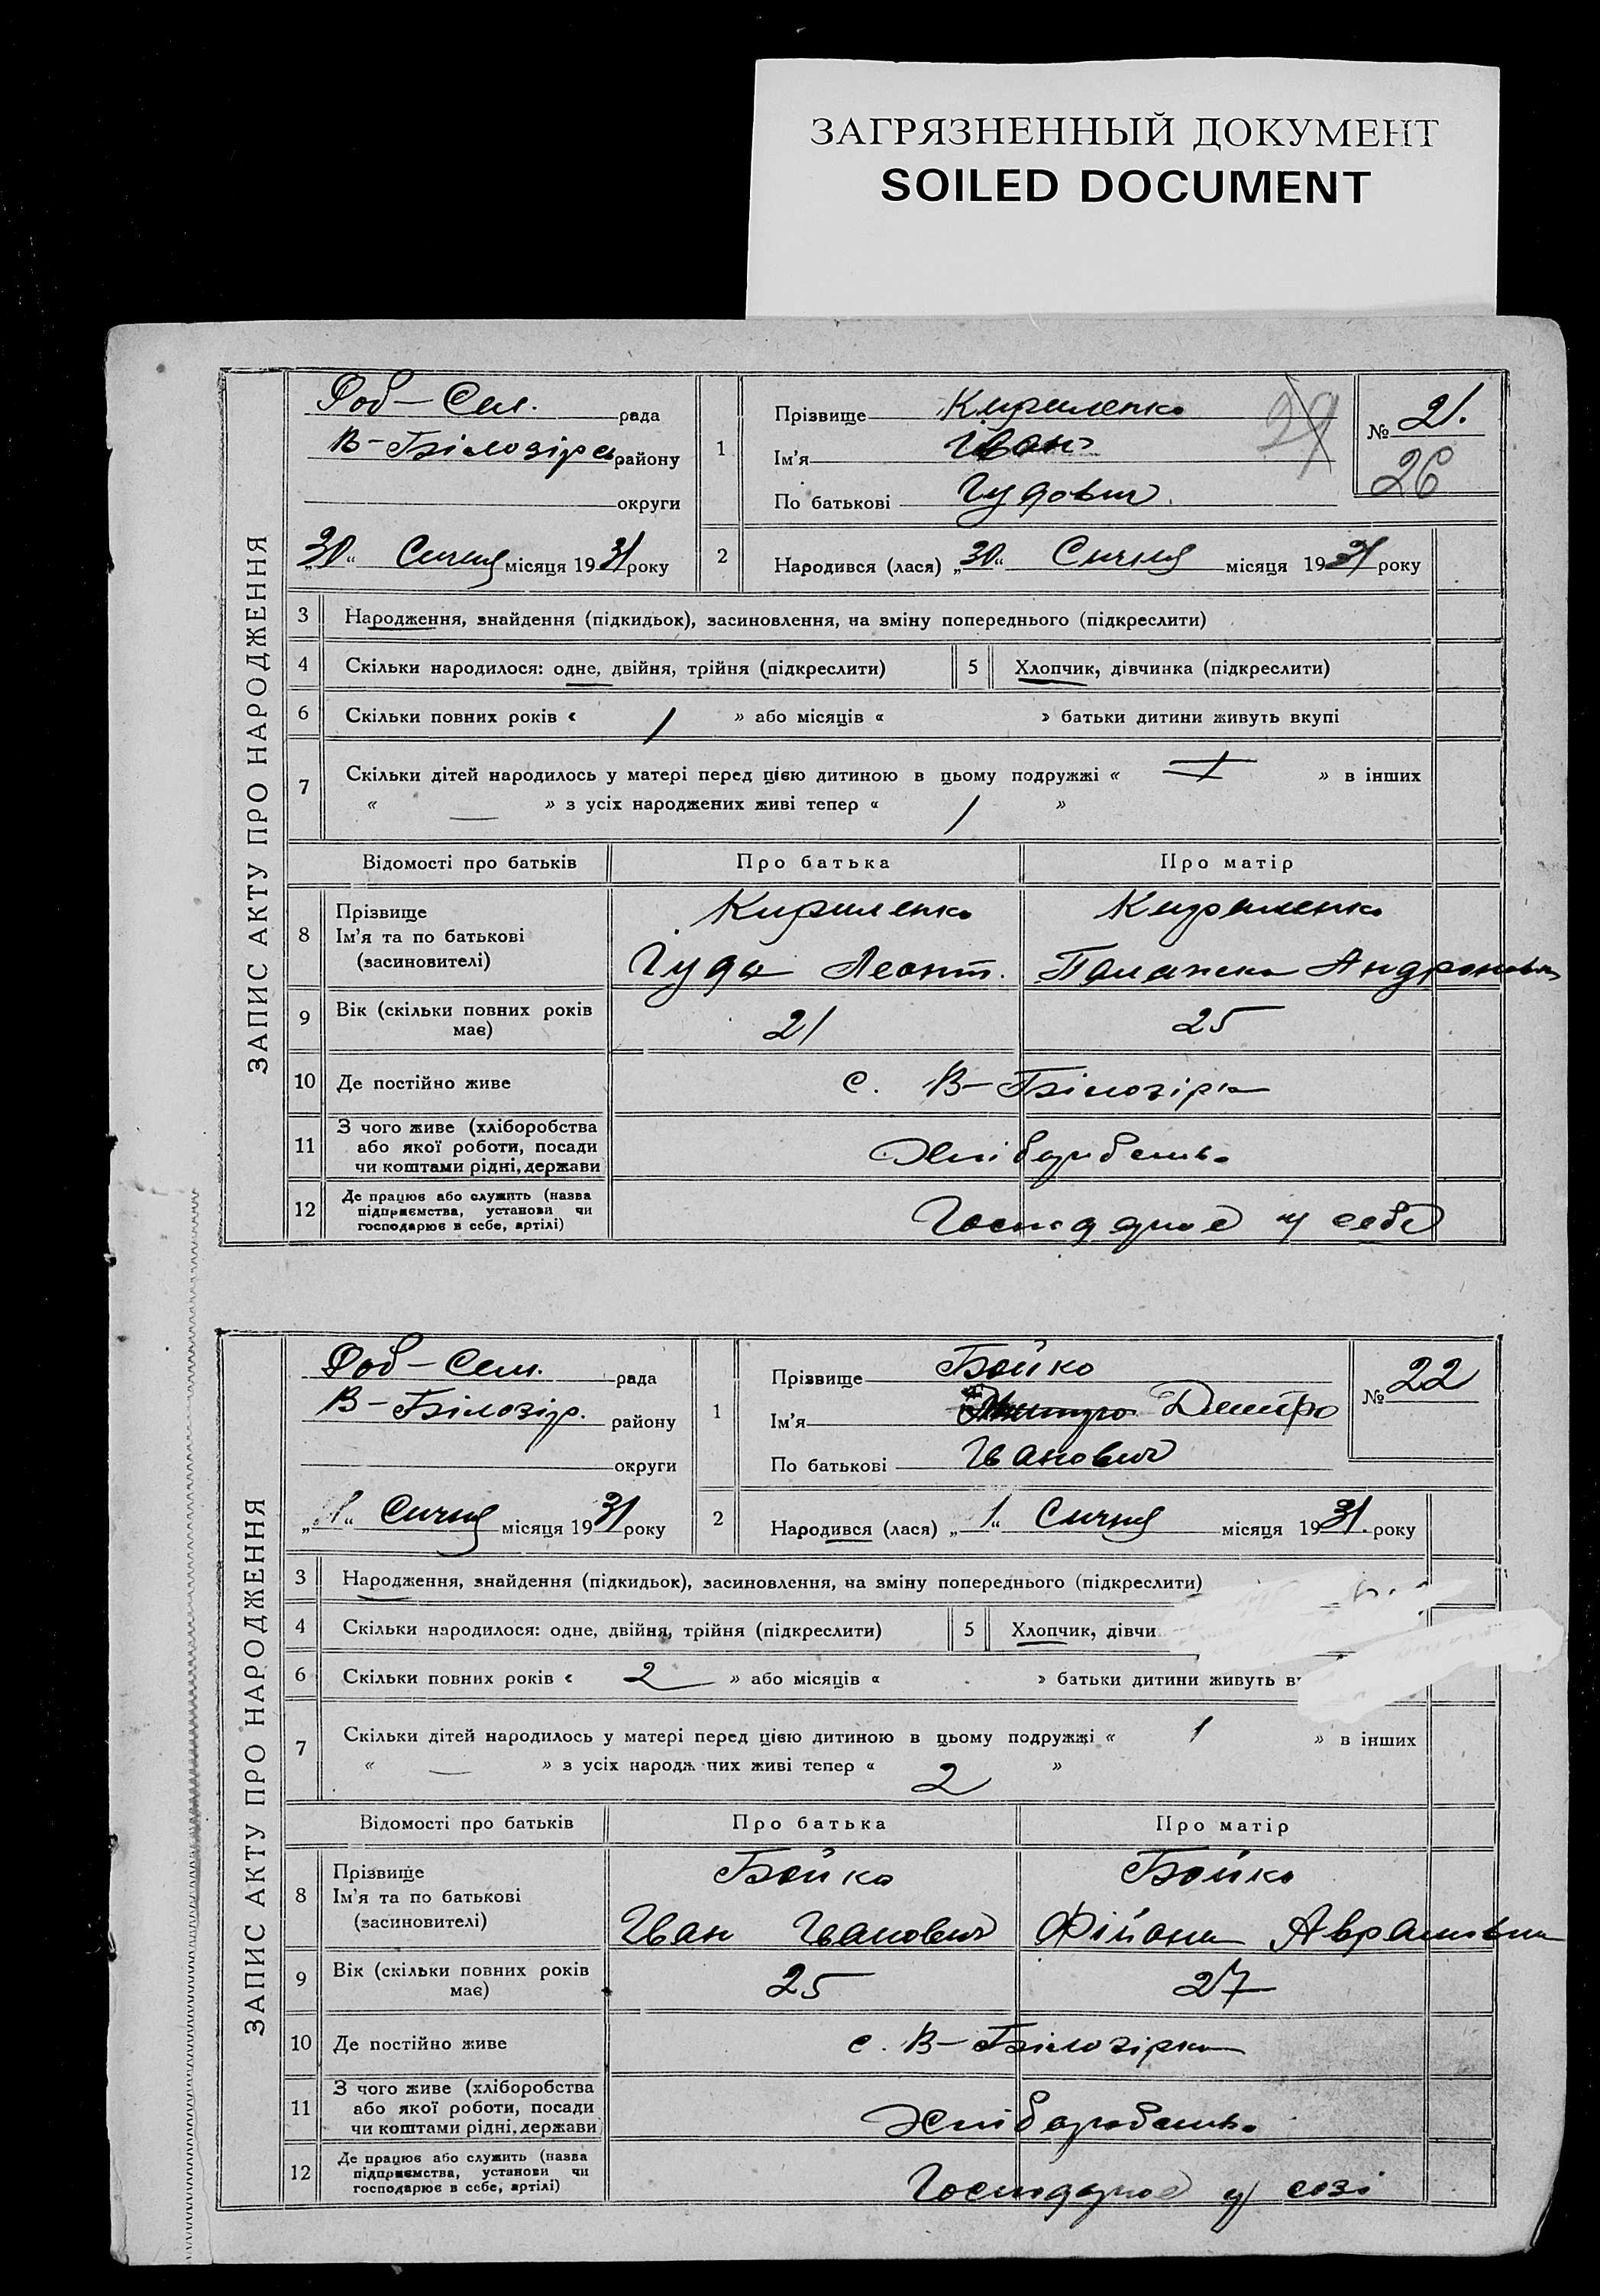 ЗАГРЯЗНЕННЫЙ ДОКУМЕНТ
SOILED DOCUMENT
ЗАПИС АКТУ ПРО НАРОДЖЕННЯ
Роб-Сел. рада
В-Білозірсь району
округи
„30“ Січня місяця 1931 року
1
Прізвище Кириленко
Ім'я Іван
По батькові Іудович
29
№ 21.
26
2
Народився (лася) „30“ Січня місяця 1931 року
3 Народження, знайдення (підкидьок), засиновлення, на зміну попереднього (підкреслити)
4 Скільки народилося: одне, двійня, трійня (підкреслити) 5 Хлопчик, дівчинка (підкреслити)
6 Скільки повних років « 1 » або місяців « » батьки дитини живуть вкупі
7 Скільки дітей народилось у матері перед цією дитиною в цьому подружжі « » в інших
« — » з усіх народжених живі тепер « 1 »
Відомості про батьків Про батька Про матір
8 Прізвище Кириленко Кириленко
Ім'я та по батькові
(засиновителі) Іуда Леонт. Палажка Андроновна
9 Вік (скільки повних років має) 21 25
10 Де постійно живе с. В-Білозірка
11 З чого живе (хліборобства
або якої роботи, посади
чи коштами рідні, держави Хліборобств.
12 Де працює або служить (назва
підприємства, установи чи
господарює в себе, артілі) Господарює у себе
ЗАПИС АКТУ ПРО НАРОДЖЕННЯ
Роб-Сел. рада
В-Білозір. району
округи
„1“ Січня місяця 1931 року
1
Прізвище Бойко
Ім'я Дмитро
По батькові Іванович
№ 22
2
Народився (лася) „1“ Січня місяця 1931. року
3 Народження, знайдення (підкидьок), засиновлення, на зміну попереднього (підкреслити)
4 Скільки народилося: одне, двійня, трійня (підкреслити) 5 Хлопчик, дівчи
6 Скільки повних років « 2 » або місяців « » батьки дитини живуть в
7 Скільки дітей народилось у матері перед цією дитиною в цьому подружжі « 1 » в інших
« — » з усіх народж них живі тепер « 2 »
Відомості про батьків Про батька Про матір
8 Прізвище Бойко Бойко
Ім'я та по батькові
(засиновителі) Іван Іванович Фійона Аврамовна
9 Вік (скільки повних років має) 25 27
10 Де постійно живе с. В-Білозірка
11 З чого живе (хліборобства
або якої роботи, посади
чи коштами рідні, держави Хліборобств.
12 Де працює або служить (назва
підприємства, установи чи
господарює в себе, артілі) Господарює у созі